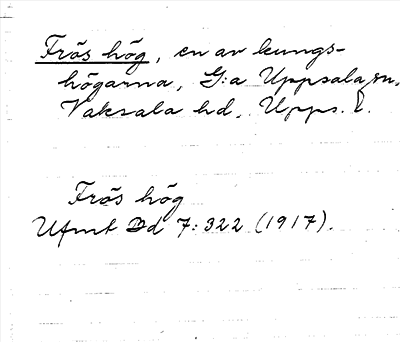 Frös hög, en av kungs-
högarna, G:a Uppsala sn,
Vaksala hd, Upps. l.
Frös hög
Ufmt Dd 7:322 (1917).